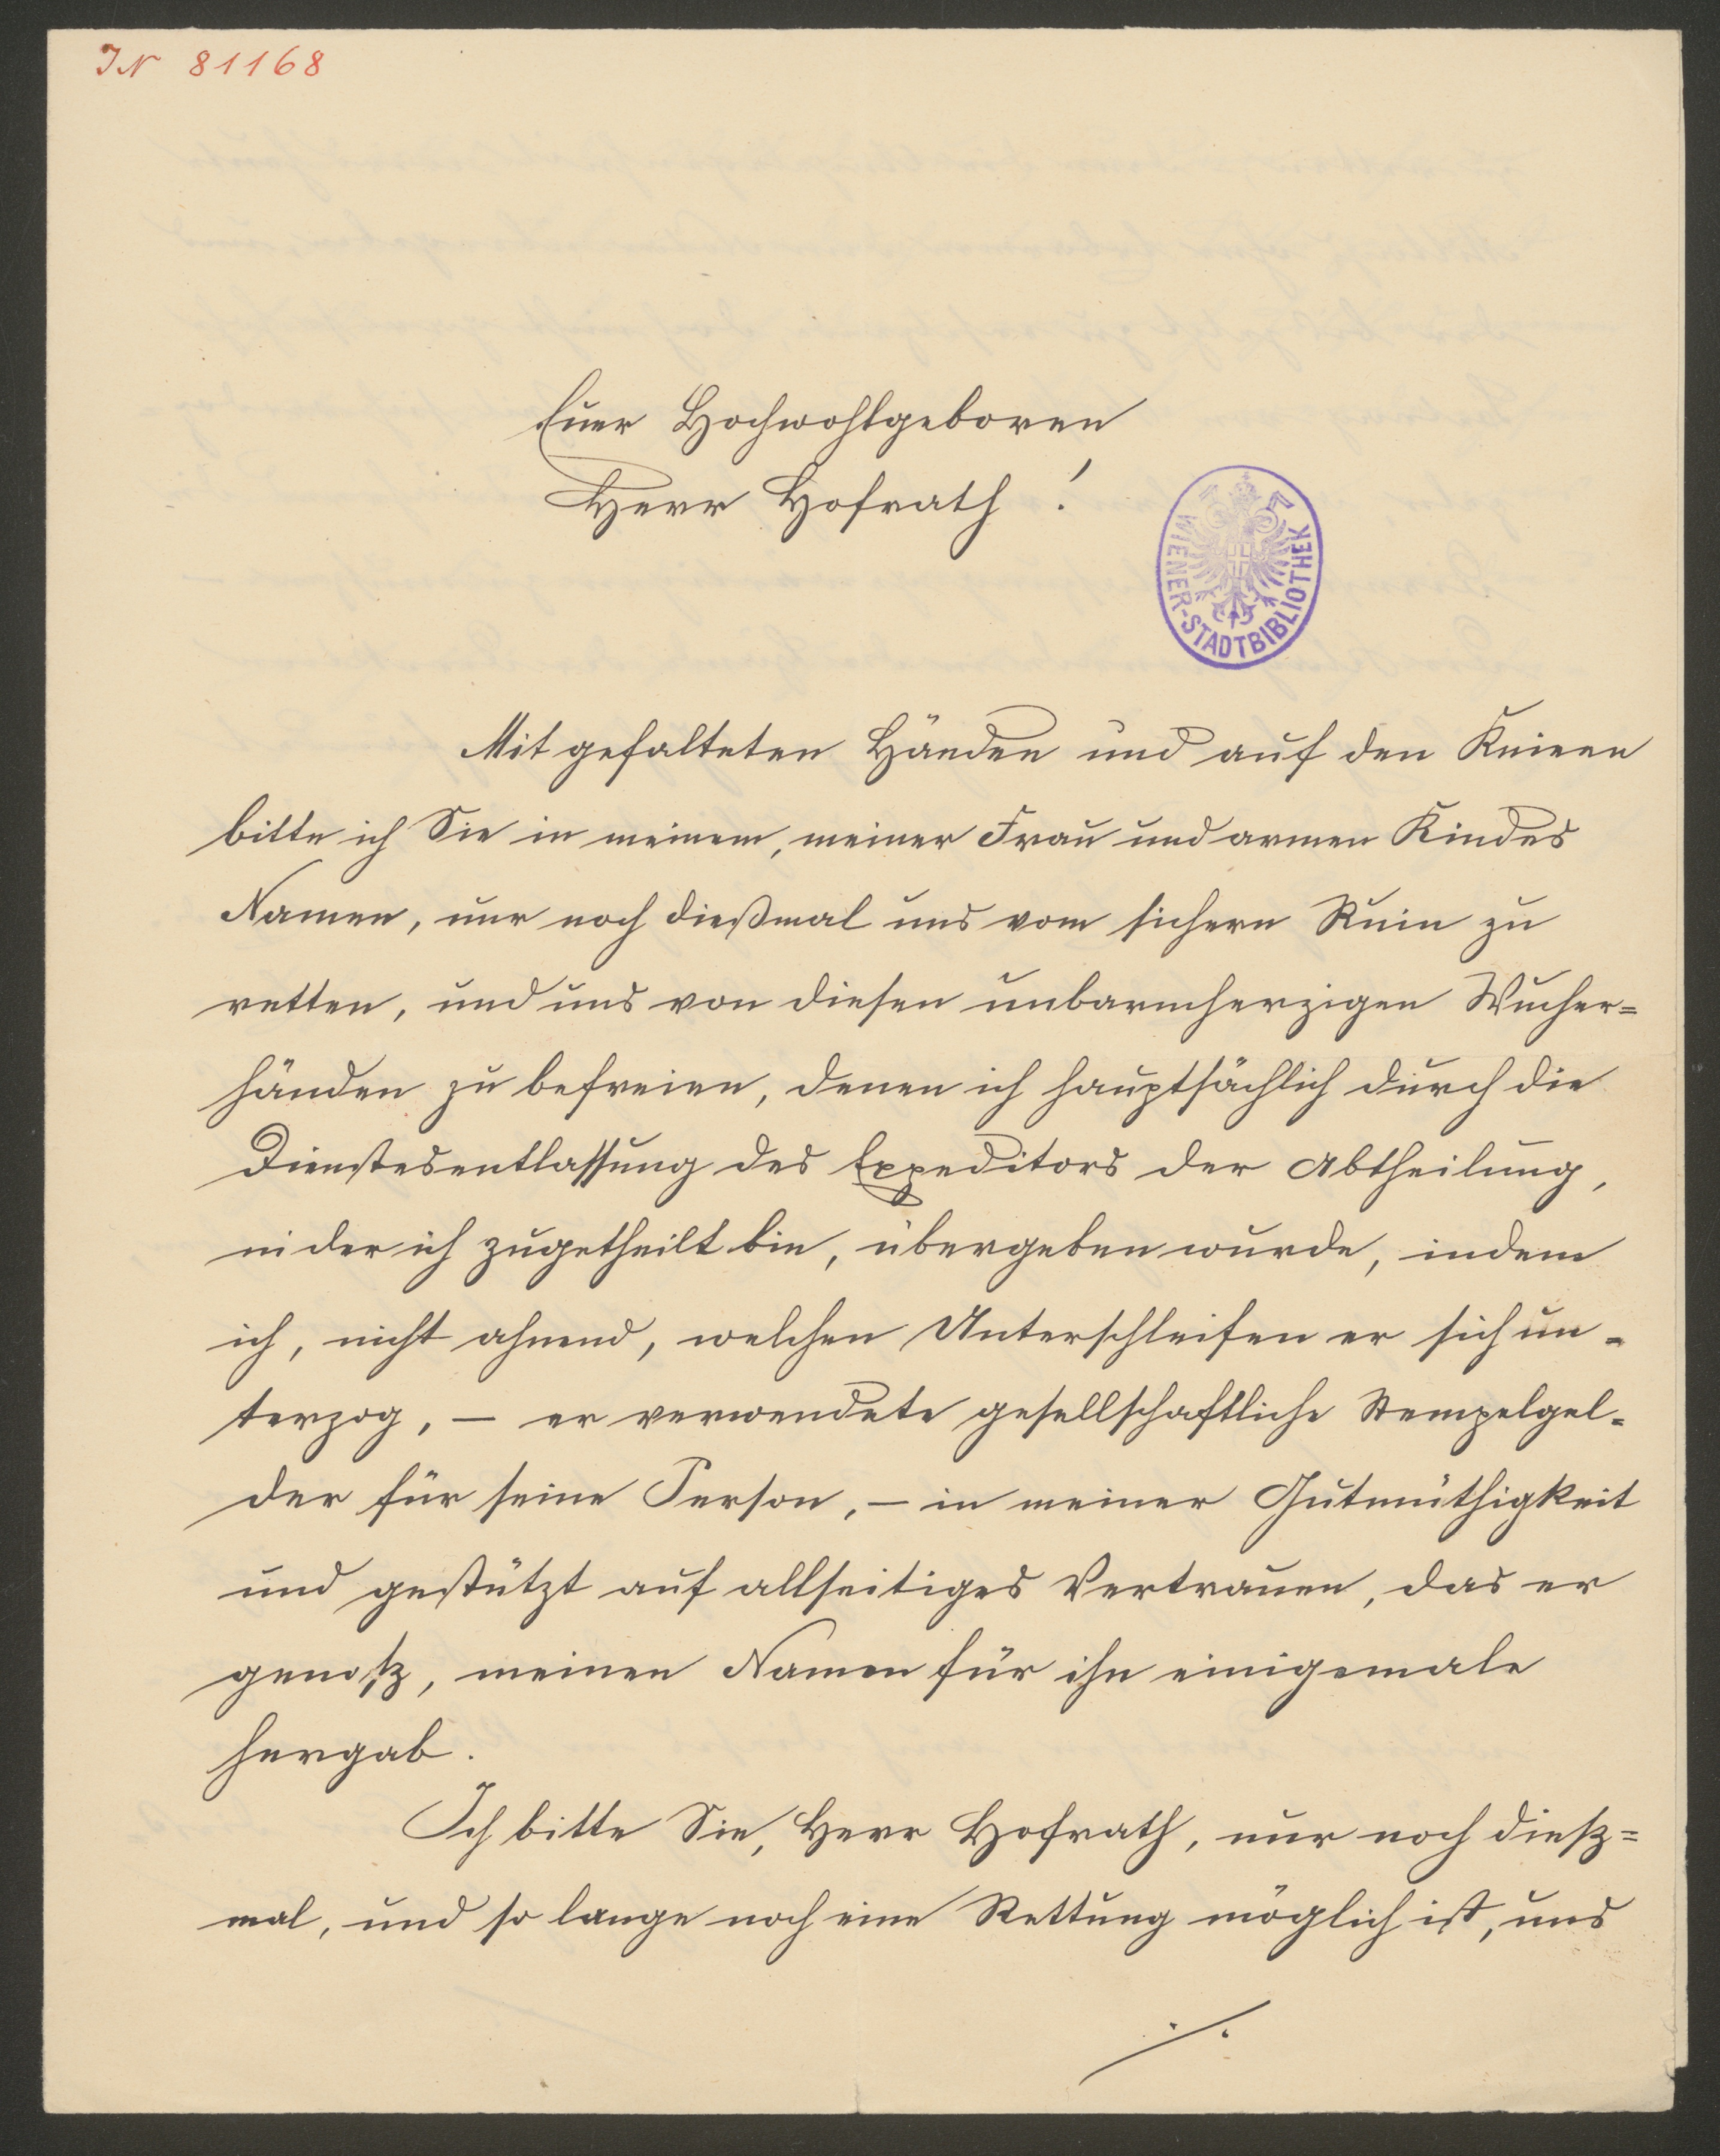 IN 81168
Euer Hochwohlgeboren
Herr Hofrath !
WIENER-STADTBIBLIOTHEK
Mit gefalteten Händen und auf den Knieen
bitte ich Sie in meinem, meiner Frau und armen Kindes
Namen, nur noch dießmal uns vom sichern Ruin zu
retten, und uns von diesen unbarmherzigen Wucher=
händen zu befreien, denen ich hauptsächlich durch die
Dienstesentlassung des Expeditors der Abtheilung,
in der ich zugetheilt bin, übergeben wurde, indem
ich, nicht ahnend, welchen Unterschleifen er sich un=
terzog, – er verwendete gesellschaftliche Stempelgel=
der für seine Person, – in meiner Gutmüthigkeit
und gestützt auf allseitiges Vertrauen, das er
genoß, meinen Namen für ihn einigemale
hergab.
Ich bitte Sie, Herr Hofrath, nur noch dieß=
mal, und so lange noch eine Rettung möglich ist, uns
./.